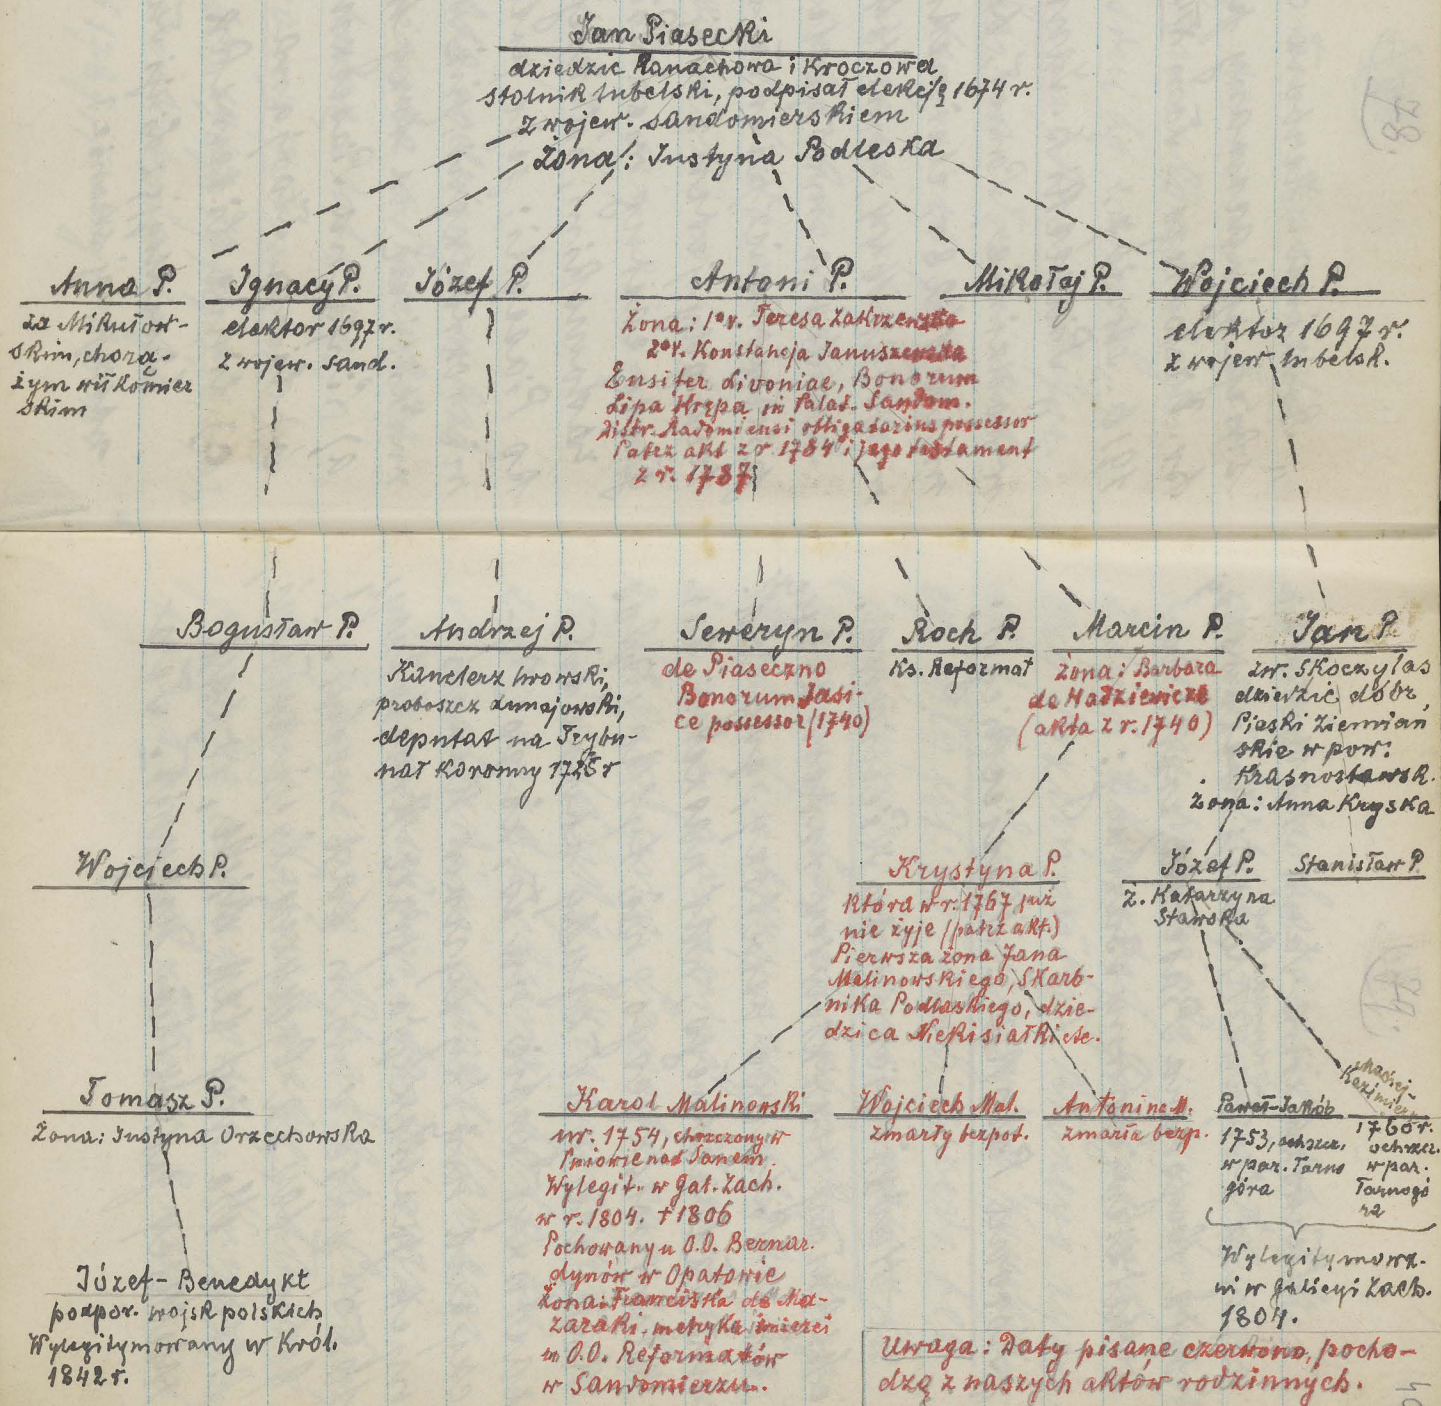 Jan Piasecki
dziedzic Ranachowa i Kroczowa
stolnik lubelski, podpisał elekcję 1674 r.
z wojew. sandomierskiem
Żona: Justyna Podleska
Anna P.
za Mikułow-
skim, chorą-
żym wiłkomier
skim
Ignacy P.
elektor 1697 r.
z wojew. sand.
Józef P.
Antoni P.
Żona: 1º v. Teresa Zakrzewska
2º v. Konstancja Januszewska
Ensifer Livoniae, Bonorum
Lipa Krępa in Palat. Sandom.
distr. Radomiensi obligatorius possessor
Patrz akt z r. 1784 i jego testament
z r. 1787
Mikołaj P.
Wojciech P.
elektor 1697 r.
z wojew. lubelsk.
Bogusław P.
Andrzej P.
Kanclerz lwowski,
proboszcz dunajowski,
deputat na Trybu-
nał Koronny 1728 r
Seweryn P.
de Piaseczno
Bonorum Jasi-
ce possessor (1740)
Roch P.
Ks. Reformat
Marcin P.
Żona: Barbara
de Hadziewicze
(akta z r. 1740)
Jan P
zw. Skoczylas
dziedzic dóbr
Pieski Ziemiań
skie w pow.
Krasnostawsk.
Żona: Anna Kryska
Wojciech P.
Krystyna P.
która w r. 1767 już
nie żyje (patrz akt.)
Pierwsza żona Jana
Malinowskiego, Skarb-
nika Podlaskiego, dzie-
dzica Niekisiałki etc.
Józef P.
Ż. Katarzyna
Stawska
Stanisław P.
Tomasz P.
Żona: Justyna Orzechowska
Karol Malinowski
ur. 1754, chrzczony w
Pniowie nad Sanem.
Wylegit. w Gal. Zach.
w r. 1804. † 1806
Pochowany u O.O. Bernar.
dynów w Opatowie
Żona: Franciszka de Ma-
zaraki. metryka śmierci
u O.O. Reformatów
w Sandomierzu.
Wojciech Mal.
zmarły bezpot.
Antonina M.
zmarła bezp.
Paweł-Jakób
1753, ochszcz.
w par. Tarno
góra
Maciej-
Kazimierz
1760 r.
ochrzcz.
w par.
Tarnogó
ra
Wylegitymowa-
ni w Galicyi Zach.
1804.
Józef-Benedykt
podpor. wojsk polskich
Wylegitymowany w Król.
1842 r.
Uwaga: Daty pisane czerwono, pocho-
dzą z naszych aktów rodzinnych.
78
79.